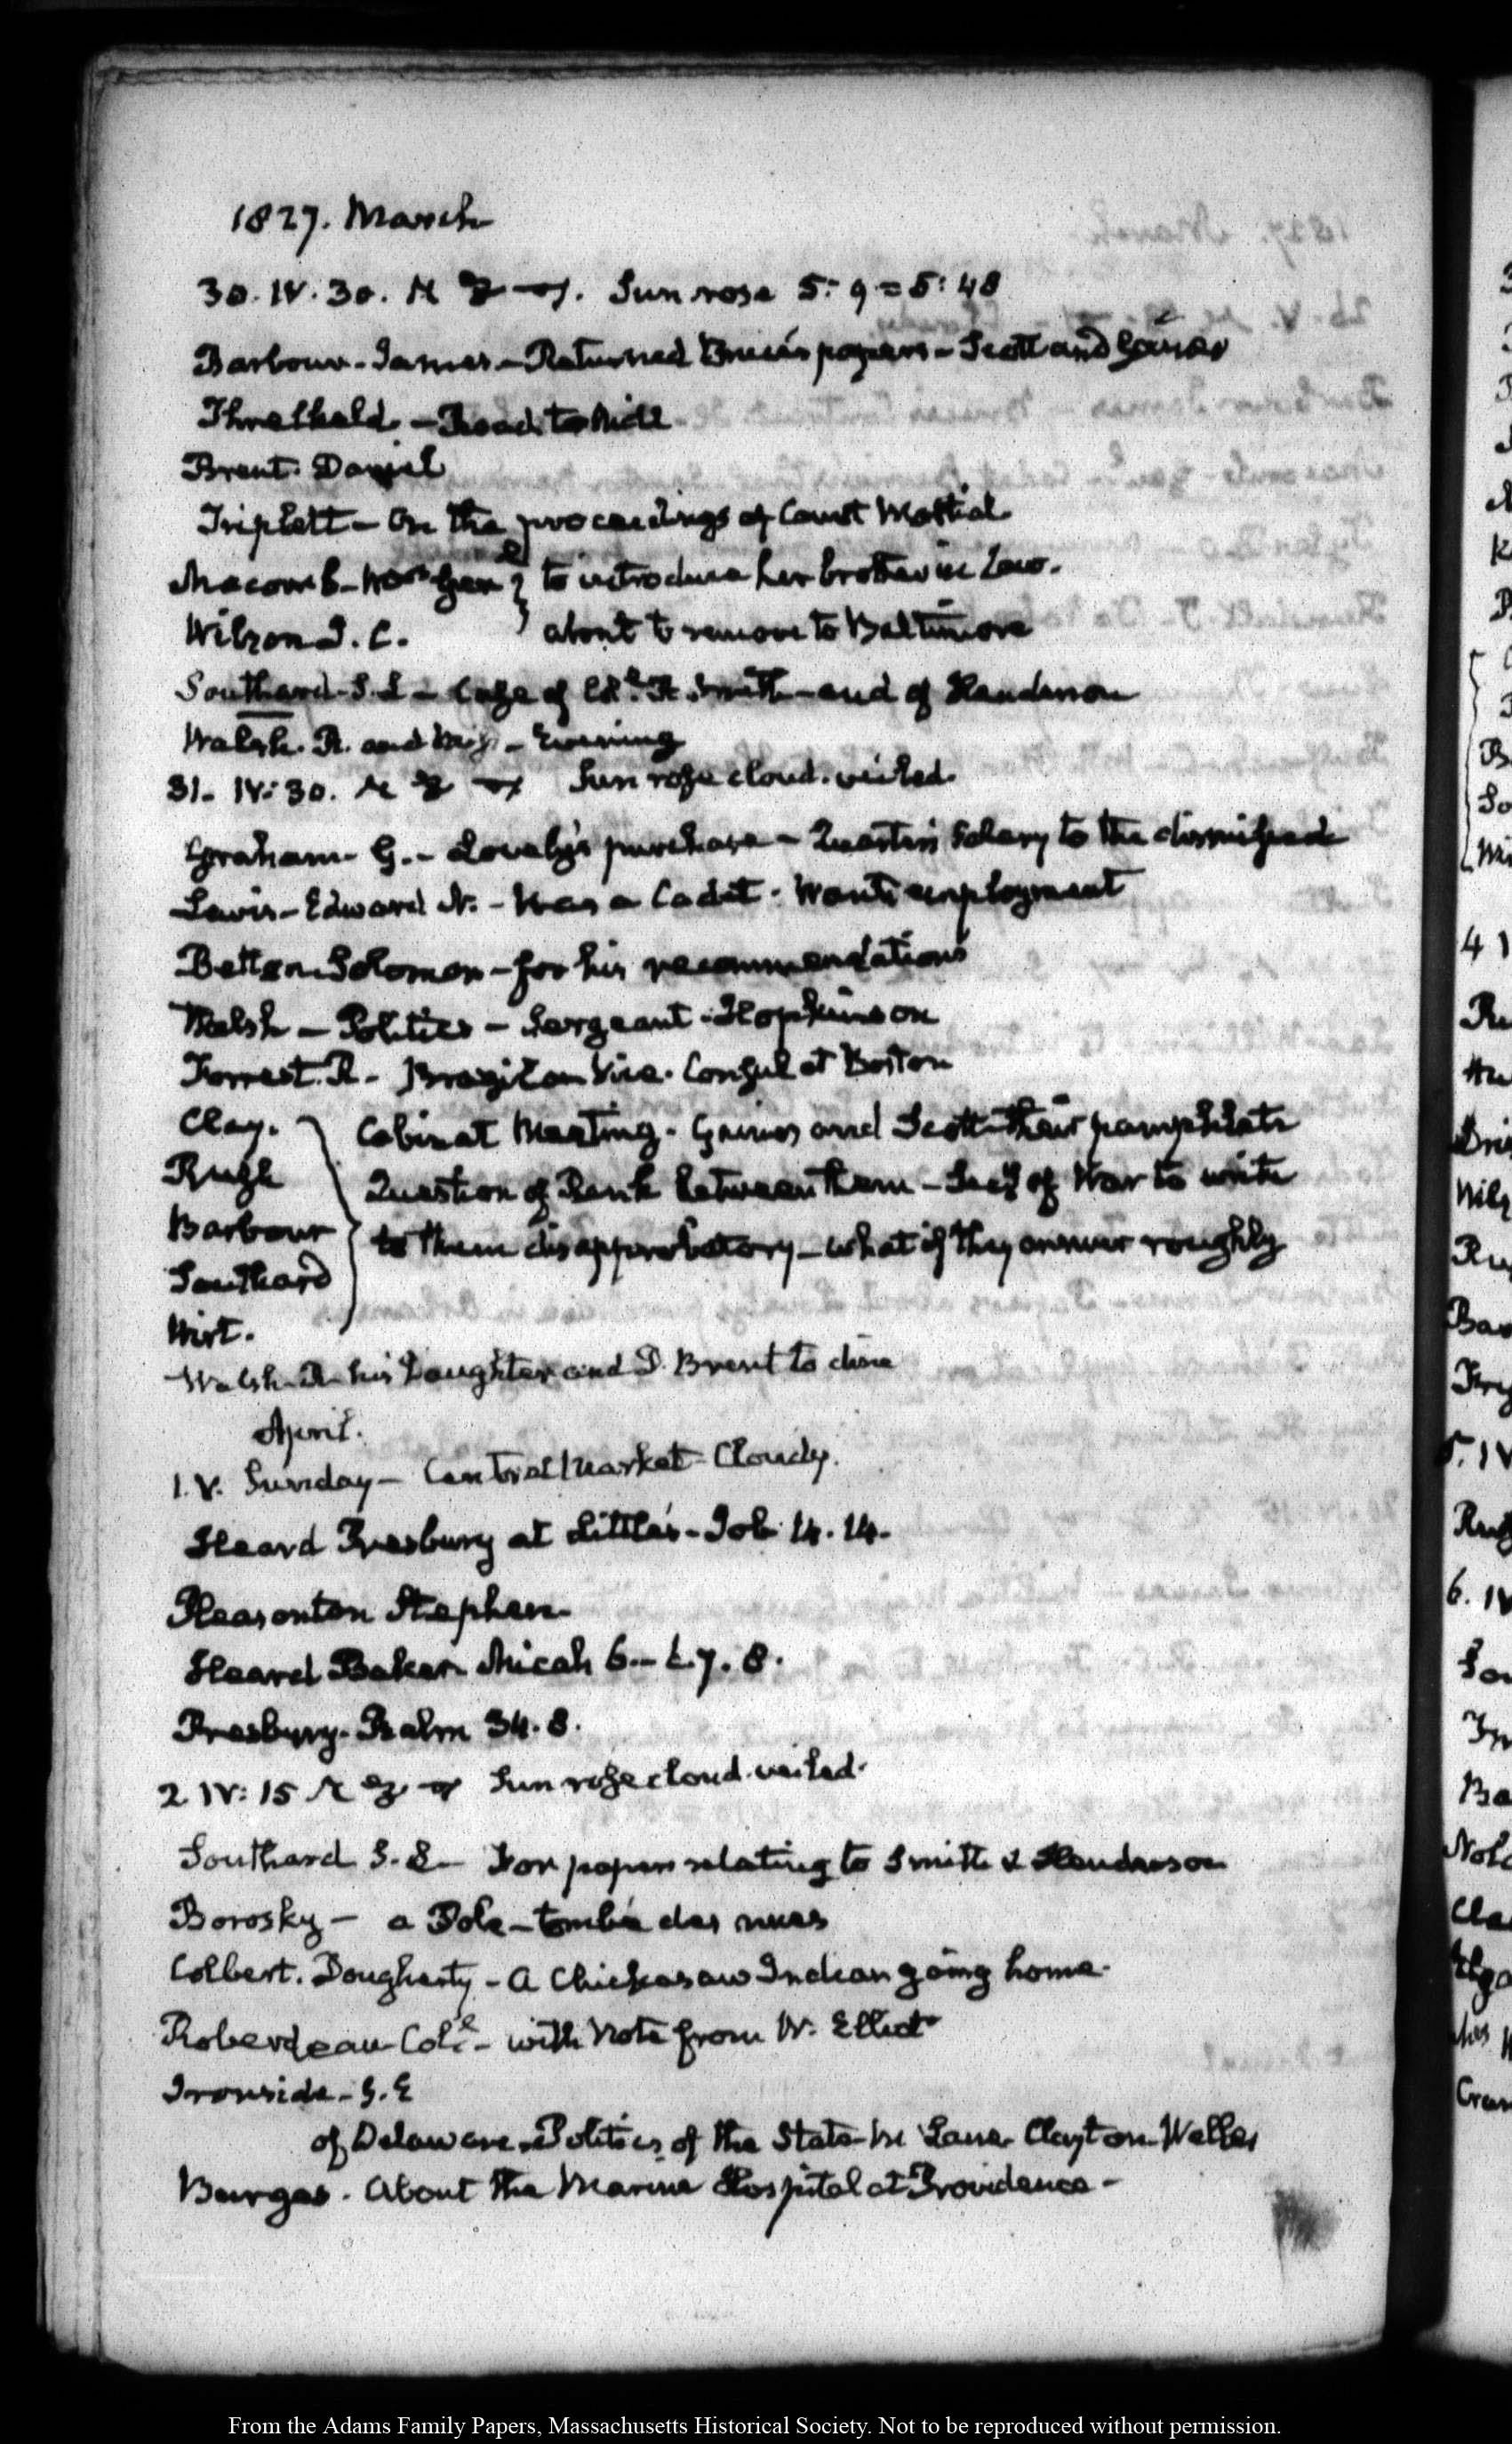 1827. March
30. IV. 30. Sun rose 5: 9 = 5: 48
Barbour. James - Returned papers - Scott and Gaines
Threlkeld - Road to
Brent. Daniel
Triplett - On the proceedings of Court Martial.
Macomb - to introduce her brother in law.
Wilson J. C. about to remove to Baltimore
Southard - S. L - Case of Smith - and of Henderson
Walsh. R. and Miss - Evening
31. IV: 30. Sun rose cloud. veiled.
Graham - G. - Lovely's purchase - Quarter's Salary to the dismissed
Lewis - Edward N. - Was a Cadet - Wants employment
Betton Solomon - for his recommendations
Walsh - Politics - Sergeant - Hopkinson
Forrest. R - Brazilian Vice. Consul at Boston
Clay. Cabinet Meeting. Gaines and Scott - Their pamphlets
Rush Question of Rank between them - Secy of War to write
Barbour to them disapprobatory - what if they answer roughly
Southard
Wirt.
Walsh - R - his Daughter and D. Brent to dine
April.
1. V. Sunday - Central Market - Cloudy.
Heard Presbury at Little's - Job. 14. 14.
Pleasonton Stephen
Heard Baker Micah 6. - 6. 7. 8.
Presbury. Psalm 34. 8.
2 IV: 15 Sun rose cloud. veiled.
Southard S. L - For papers relating to Smith & Henderson
Borosky - a Pole - tombé des nues
Colbert. Dougherty - A Chickasaw Indian going home.
Roberdeau Coll. - with Note from W. Elliot
Ironside - G. E
of Delaware. Politics of the State - Mc Lane Clayton - Welles
Burges. About the Marine Hospital at Providence -
From the Adams Family Papers, Massachusetts Historical Society. Not to be reproduced without permission.